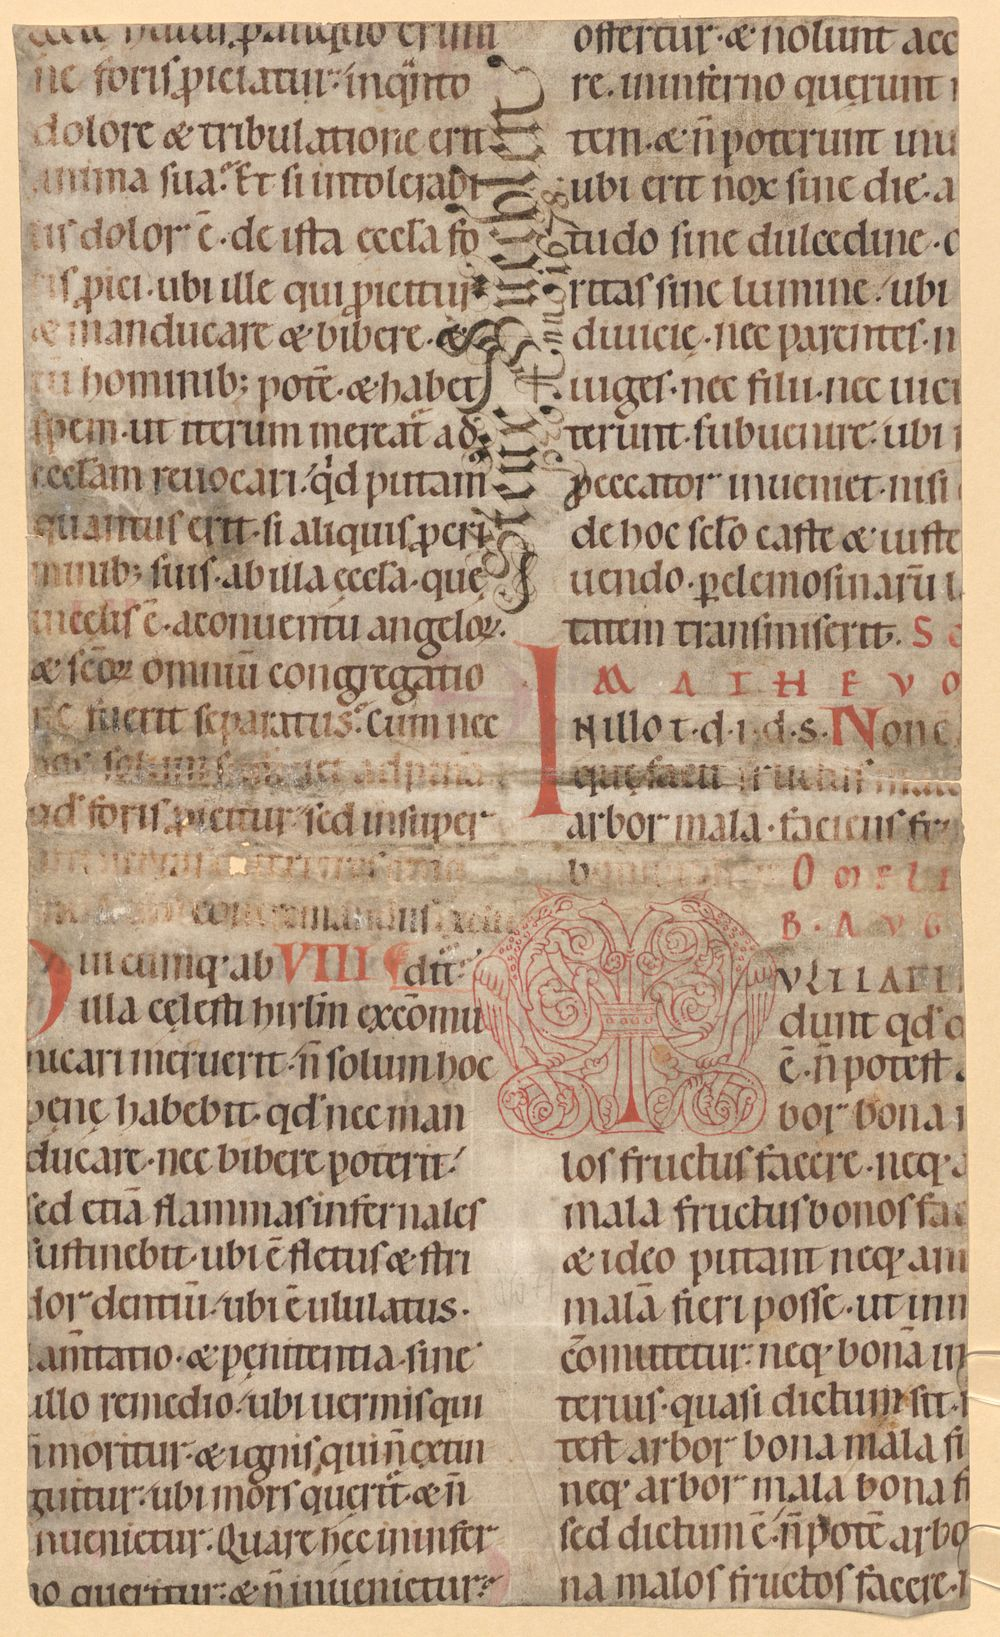 ne foris ꝓiciatur. in q̈nto
dolore & tribulatione erit
anima sua. Et si intolerabi
lis dolor ē. de ista eccl̄a fo
ris ꝓici. ubi ille qui ꝓicitur
& manducare & bibere. &
cū hominib; potē. & habet
spem. ut iterum mereat̄ ad
eccl̄am reuocari. qd putam̄
quantus erit. si aliquis ꝓ cri
minib; suis. ab illa eccl̄a. quę
in cęlis ē. a conuentu angeloꝝ.
& sc̄oꝝ omniū congregatio
ne fuerit separatus. Cum nec
ad foris ꝓicitur. sed insuper
ui cumq; ab VIII dī̄
illa cęlesti hirl̄m excōmu
nicari meruerit. n̄ solum hoc
penę habebit. qd nec man
ducare. nec bibere poterit.
sed etiā flammas infernales
sustinebit. ubi ē fletus & stri
dor dentiū. ubi ē ululatus.
lam̄tatio. & pęnitentia. sine
ullo remedio. ubi uermis qui
n̄ moritur. & ignis qui n̄ extin
guitur. ubi mors querit̄. & n̄
inuenietur. Quare hęc in infer
no queritur. & n̄ inuenietur.
Anno 1678
offertur. & nolunt acc
re. in inferno querunt
tem. & n̄ poterunt inu
ubi erit nox sine die. a
tudo sine dulcedine.
ritas sine lumine. ubi
diuicię. nec parentes. n
iuges. nec filii. nec uici
terunt. subuenire. ubi
peccator inueniet. nisi
de hoc sclo caste & iuste
uendo. ꝑ elemosinarū
tatem transmiserit. S
MATHEVO
IN illo t. d. i. d. s. Non ē
quę facit fructus
arbor mala. faciens
OMELI
B. AVG
dunt qd
ē. n̄ potest
bor bona
los fructus facere. neq;
mala fructus bonos fac
& ideo putant neq; ani
malā fieri posse. ut in
cōmutetur. neq; bonā in
terius. quasi dictum sit.
test arbor bona mala f
neq; arbor mala bona f
sed dictum ē. n̄ potē arbo
na malos fructos facere.